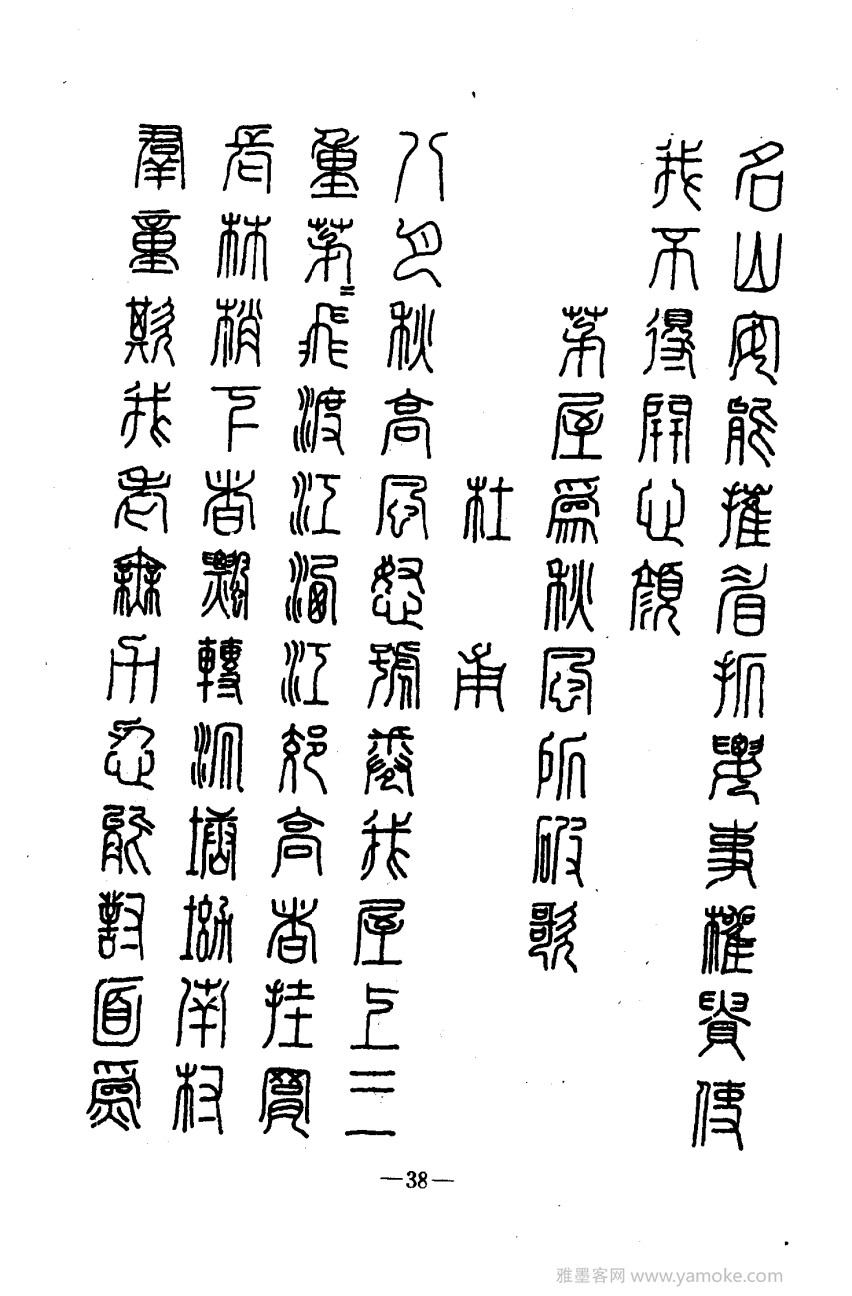 名山安能摧眉折腰事權貴使
我不得開心顏
茅屋爲秋風所破歌
杜甫
八月秋高風怒號卷我屋上三
重茅〻飛渡江灑江郊高者挂罥
長林梢下者飄轉沉塘坳南村
羣童欺我老無力忍能對面爲
—38—
雅墨客网 www.yamoke.com